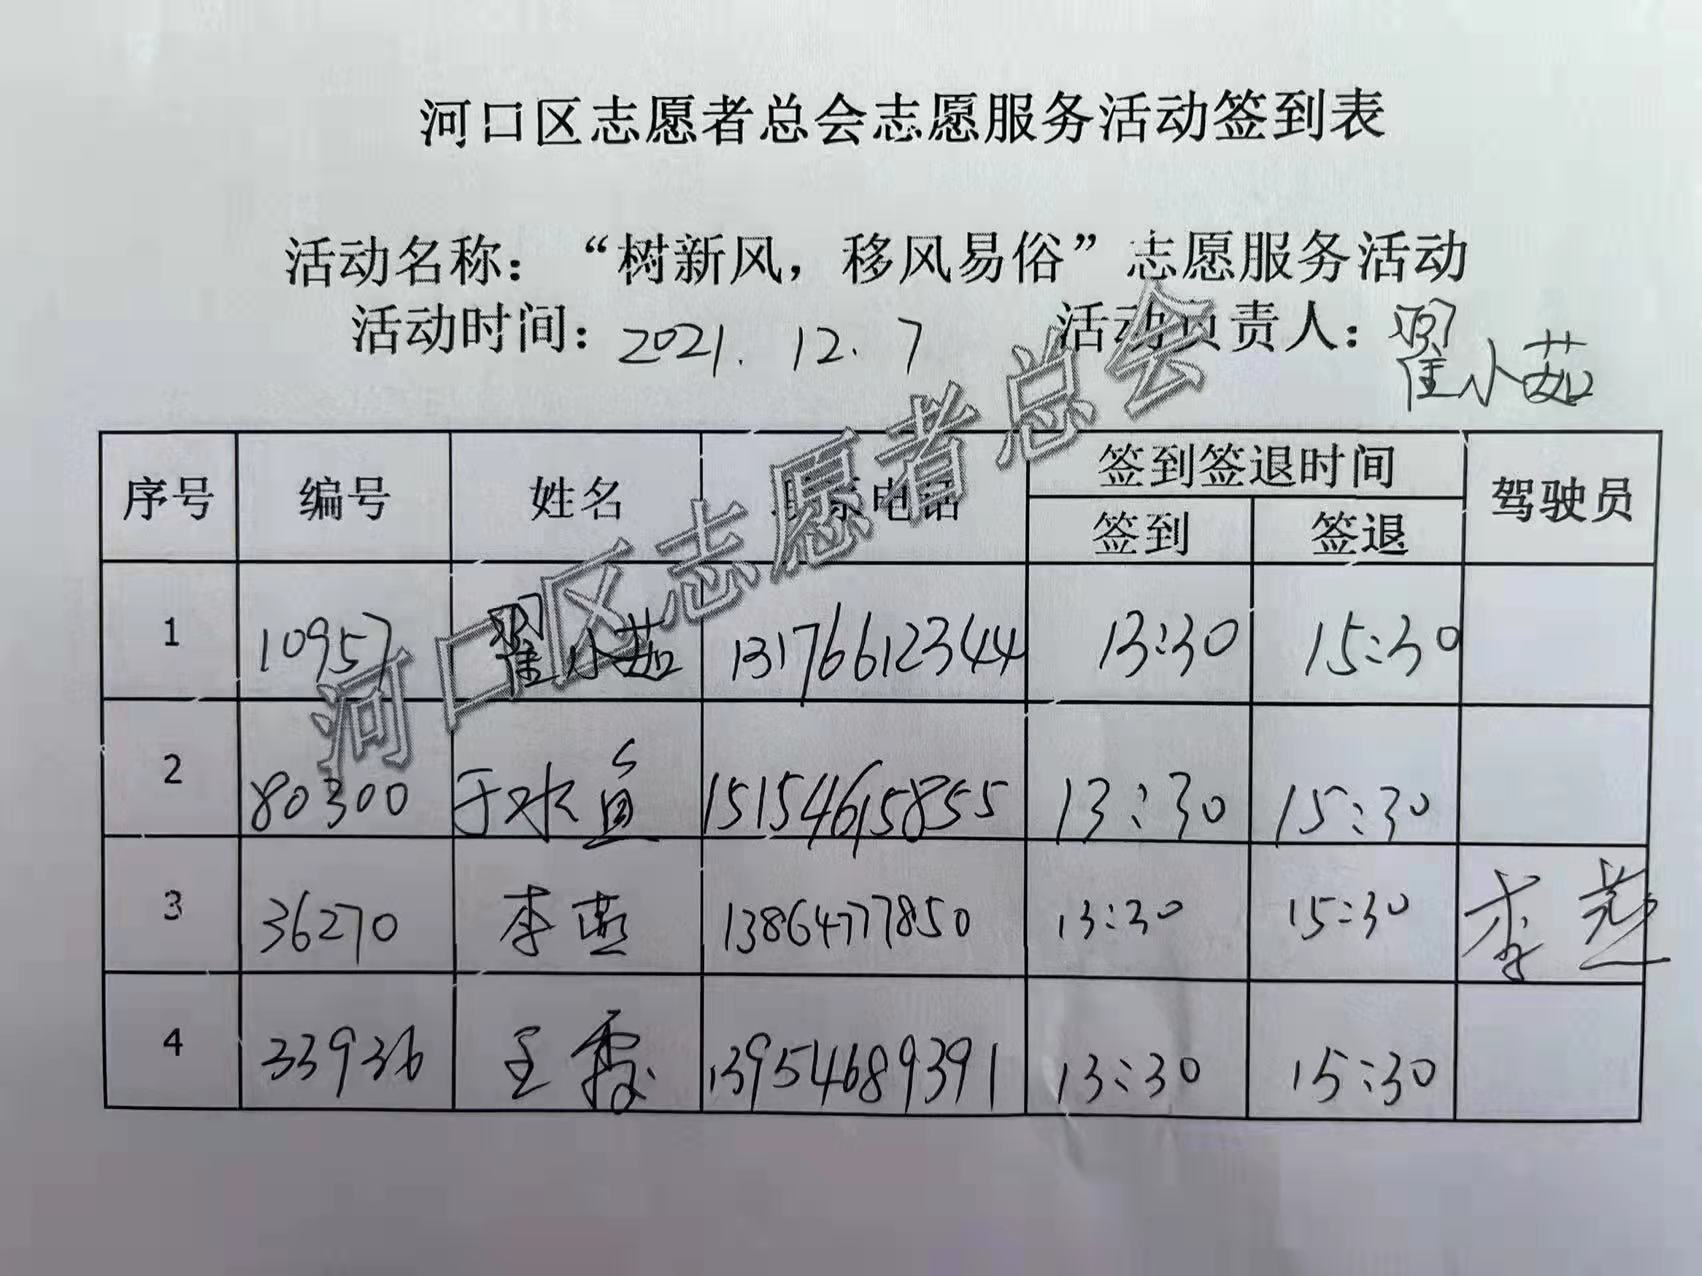 河口区志愿者总会志愿服务活动签到表
活动名称：“树新风，移风易俗”志愿服务活动
活动时间：2021.12.7 活动负责人：翟小茹
序号 编号 姓名 联系电话 签到签退时间 驾驶员
签到 签退
1 10957 翟小茹 13176612344 13:30 15:30
2 80300 于水 15154615855 13:30 15:30
3 36270 李燕 13864777850 13:30 15:30 李燕
4 33936 王霞 13954689391 13:30 15:30
河口区志愿者总会